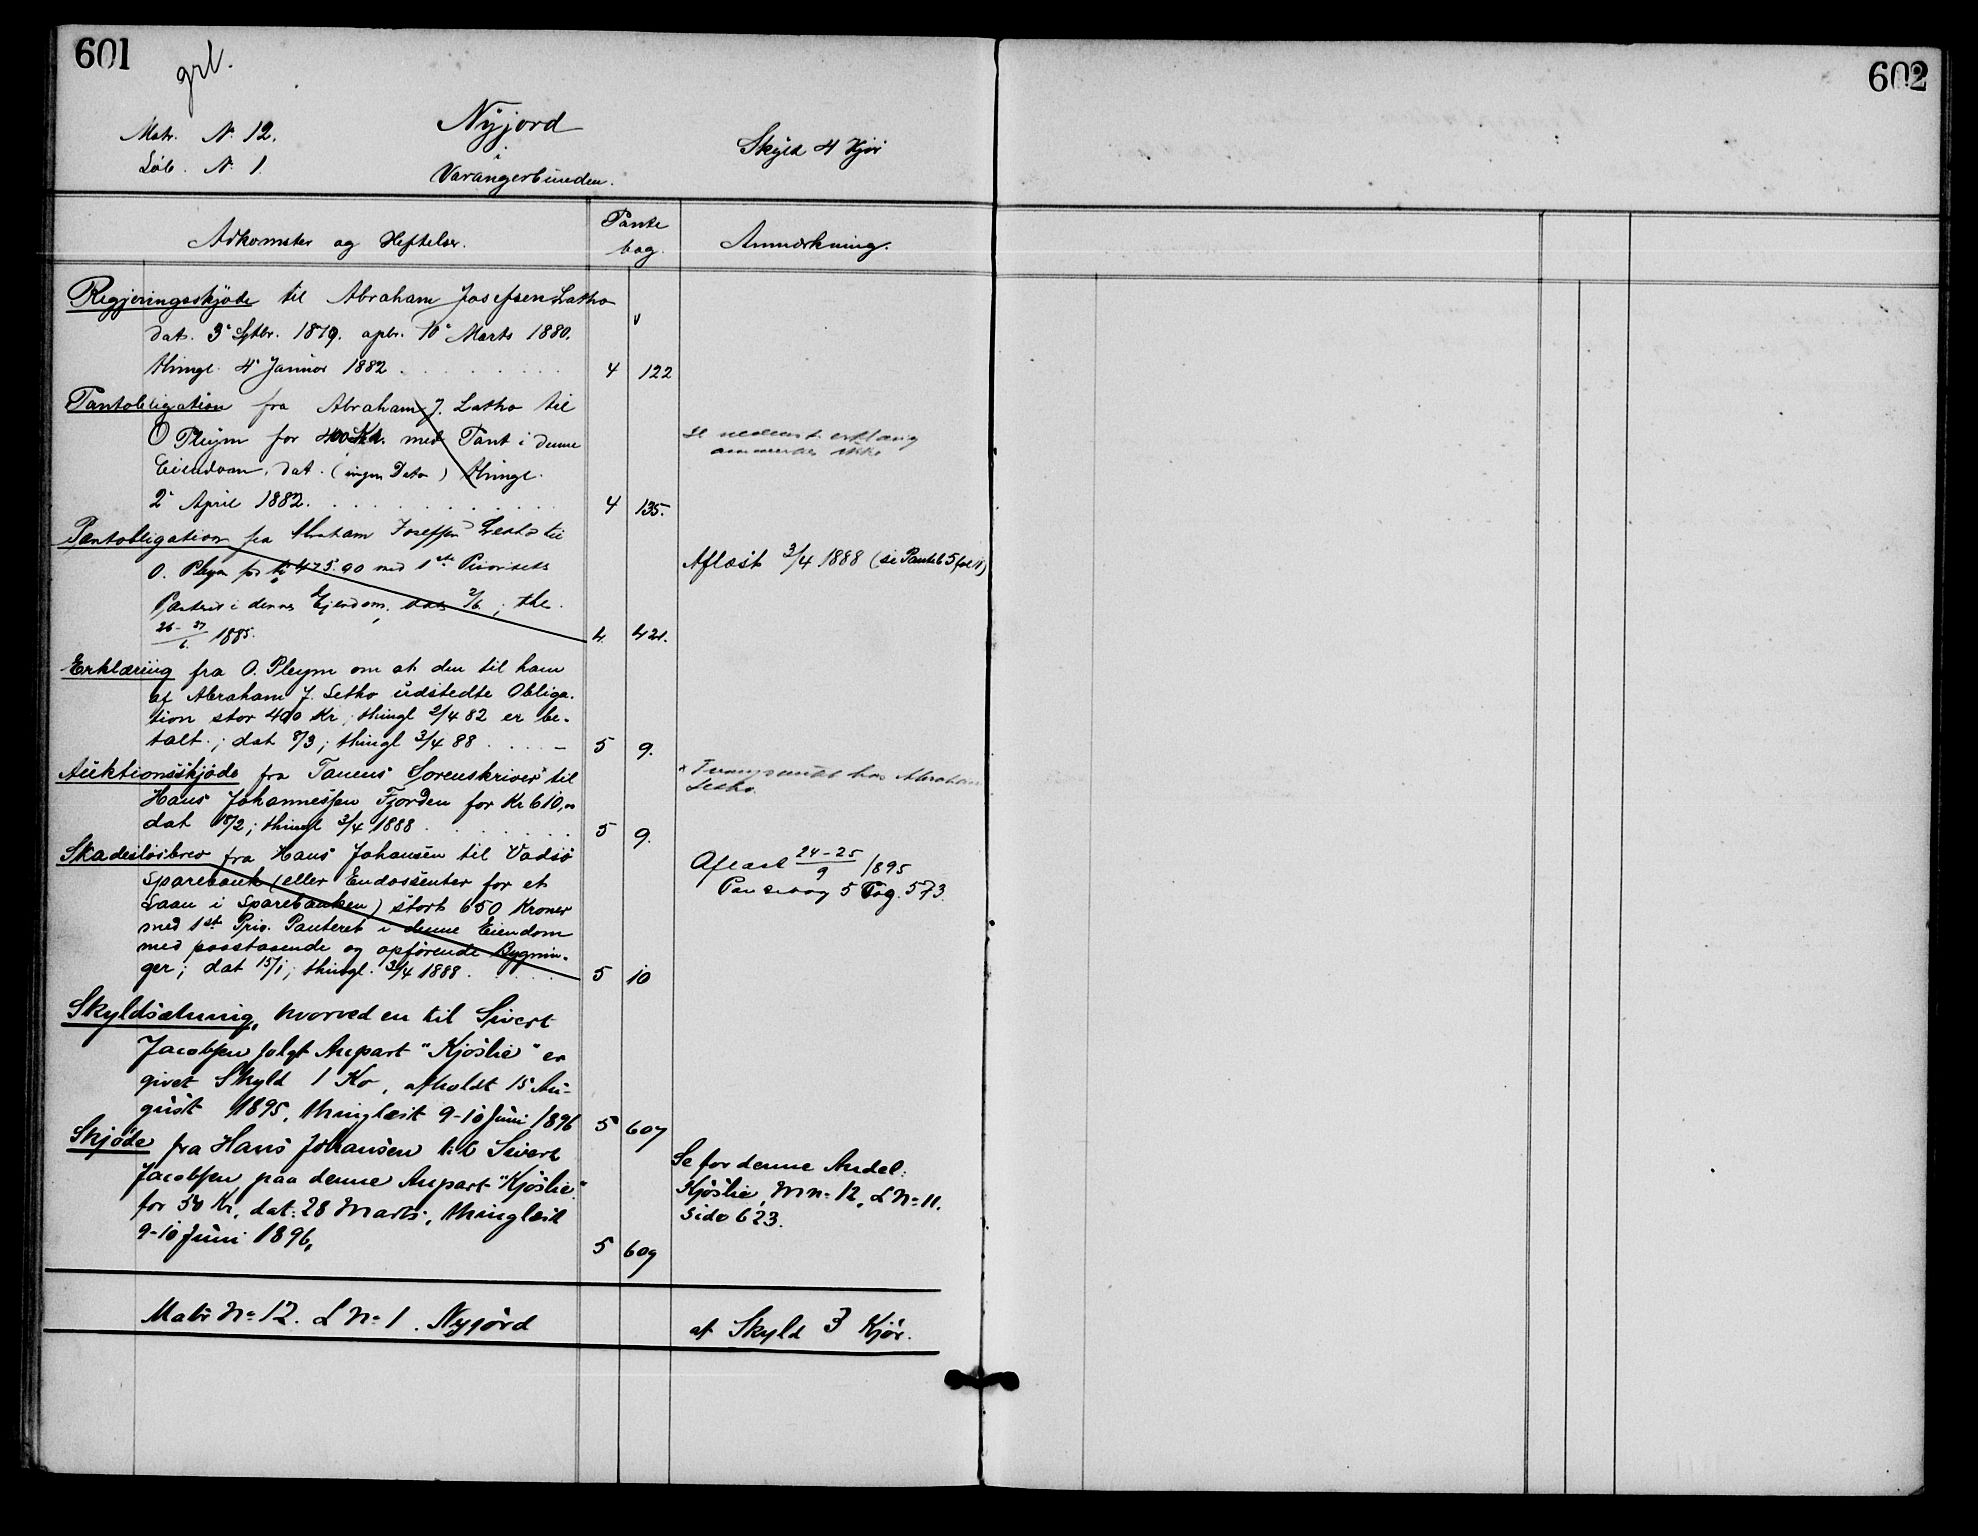 601
grl.
602
Matr. No 12.
Nyjord
Skyld 4 Kjør
Løb. No 1.
i Varangerbunden.
Adkomster og Heftelser.
Pante bog.
Anmærkning.
Regjeringsskjøde til Abraham Josefsen Latho
dat. 3 Septbr. 1879. apbr. 10 Marts 1880.
thingl. 4 Januar 1882 . . . . . . . . 4 122
Pantobligation fra Abraham J. Latho til
O Pleym for 400 Kr. med Pant i denne
Eiendom, dat. (ingen Dato) thingl.
2 April 1882. . . . . . . . . . 4 135.
se nedenst. erklæring
Pantobligation fra Abraham Josefsen Letho til
O. Pleym for kr 475.90 med 1ste Prioritets
Panteret i denne Ejendom, dat 2/6, thl.
26-27/6 1885. 4. 421.
Aflæst 3/4 1888 (se Panteb 5 fol 11)
Erklæring fra O. Pleym om at den til ham
af Abraham J. Letho udstedte Obliga-
tion stor 400 Kr, thingl 2/4 82 er be-
talt.; dat 8/3; thingl 3/4 88 . . . . 5 9.
Auktionsskjøde fra Tanens Sorenskriver til
Hans Johannessen Fjorden for Kr 610,
dat 18/2; thingl 3/4 1888 . . . . . . 5 9.
Abraham
Letho.
Skadesløsbrev fra Hans Johansen til Vadsø
Sparebank (eller Endossenter for et
Laan i Sparebanken) stort 650 Kroner
med 1st Prio. Panteret i denne Eiendom
med paastaaende og opførende Bygnin-
ger; dat 15/1; thingl. 3/4 1888 . . . . 5 10
Aflæst 24-25/9 1895
Pantebog 5 Pag. 573.
Skyldsætning, hvorved en til Sivert
Jacobsen solgt Anpart "Kjøslie" er
givet Skyld 1 Ko, afholdt 15 Au-
gust 1895, thinglæst 9-10 Juni 1896 5 607
Skjøde fra Hans Johansen til Sivert
Jacobsen paa denne Anpart "Kjøslie"
for 50 Kr, dat: 28 Marts, thinglæst
9-10 Juni 1896, 5 609
Se for denne Andel:
Kjøslie, M No 12, L No 11.
Side 623.
Matr No 12. L No 1. Nyjord
af Skyld 3 Kjør.